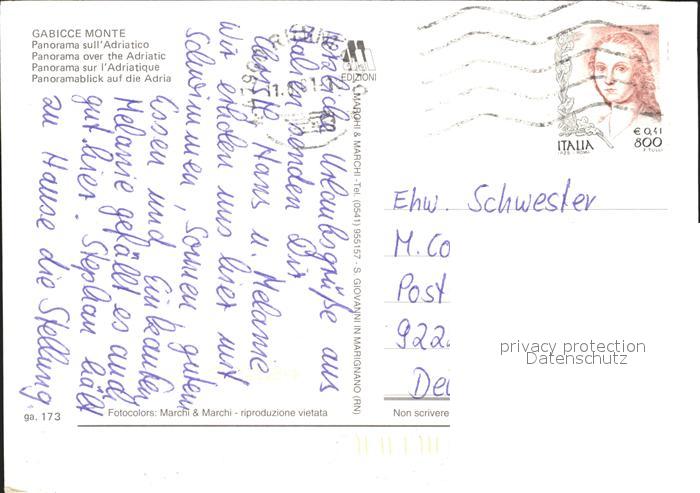 GABICCE MONTE
Panorama sull'Adriatico
Panorama over the Adriatic
Panorama sur l'Adriatique
Panoramablick auf die Adria
EDIZIONI
MARCHI & MARCHI - Tel. (0541) 955157 - S. GIOVANNI IN MARIGNANO (RN)
Herzliche Urlaubsgrüße aus
Italien senden Dir
Christl, Hans u. Melanie
Wir erholen uns hier mit
Schwimmen, Sonnen, gutem
Essen und Einkaufen
Melanie gefällt es auch
gut hier. Stephan hält
zu Hause die Stellung.
€ 0,41
800
ITALIA
Ehw. Schwester
M. Co
Post
922
De
privacy protection
Datenschutz
ga. 173
Fotocolors: Marchi & Marchi - riproduzione vietata
Non scrivere